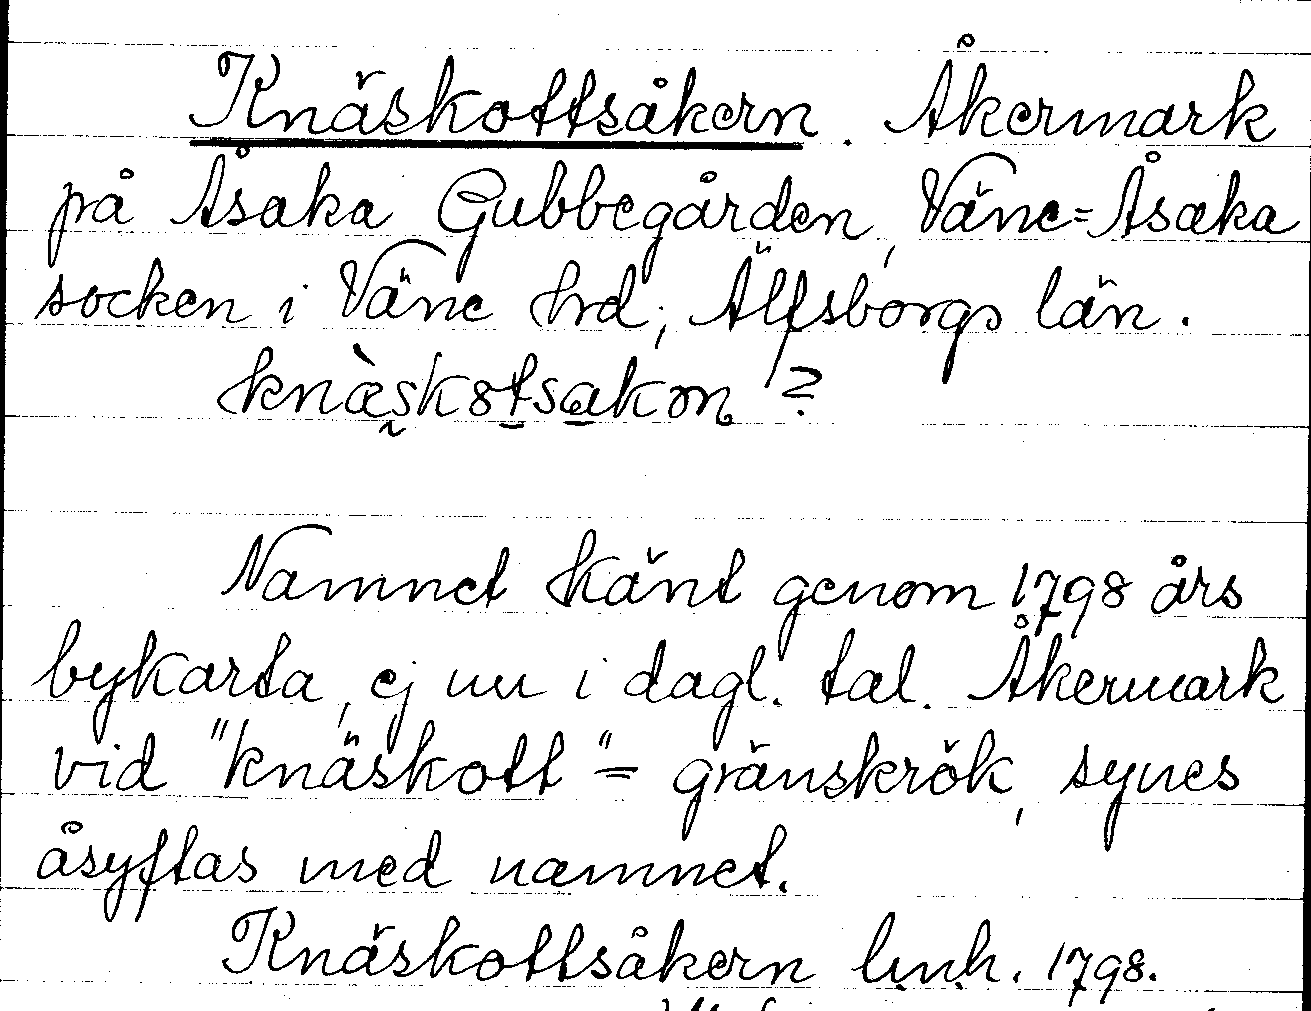 Knäskottsåkern. Åkermark
på Åsaka Gubbegården, Väne=Åsaka
socken i Väne hrd, Älfsborgs län.
knæ̀skotsakon ?
Namnet känt genom 1798 års
bykarta, ej nu i dagl. tal. Åkermark
vid "knäskott" = gränskrök, synes
åsyftas med namnet.
Knäskottsåkern l.m.h. 1798.